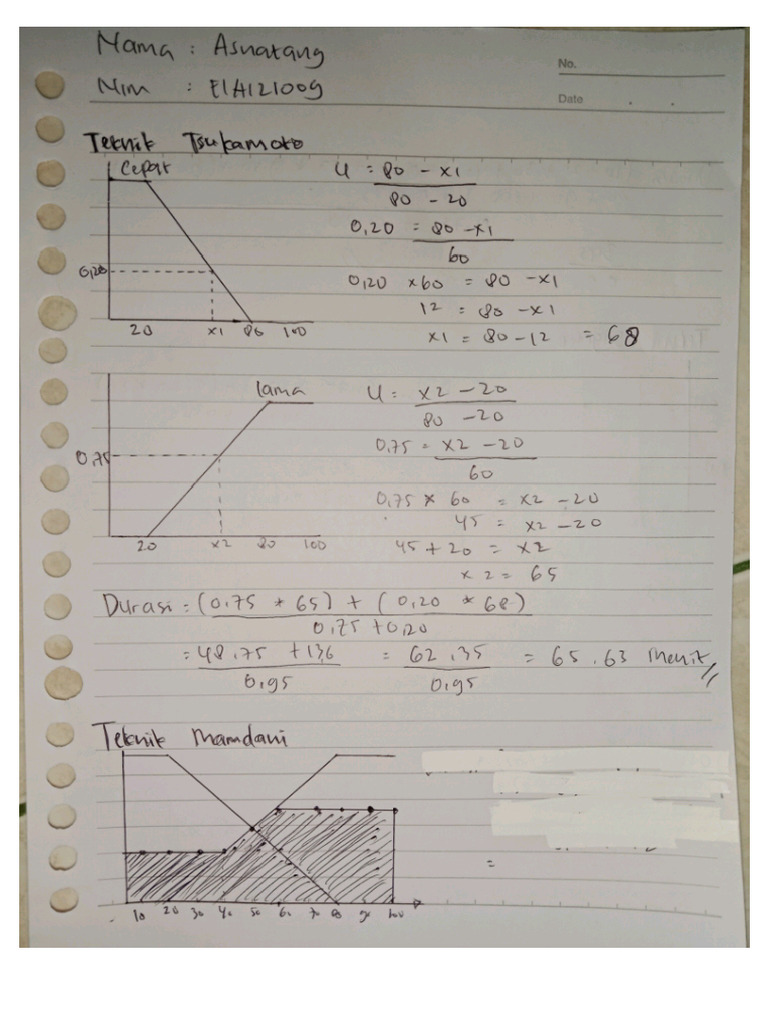 Nama : Asnatang
No.
Nim : E1A121009
Date
Teknik Tsukamoto
Cepat
0,20
20 x1 80 100
U = 80 - x1
80 - 20
0,20 = 80 - x1
60
0,20 x 60 = 80 - x1
12 = 80 - x1
x1 = 80 - 12 = 68
lama
0,75
20 x2 80 100
U = x2 - 20
80 - 20
0,75 = x2 - 20
60
0,75 x 60 = x2 - 20
45 = x2 - 20
45 + 20 = x2
x2 = 65
Durasi = (0,75 * 65) + (0,20 * 68)
0,75 + 0,20
= 48.75 + 13,6 = 62.35 = 65.63 Menit
0,95 0,95
Teknik Mamdani
=
10 20 30 40 50 60 70 80 90 100